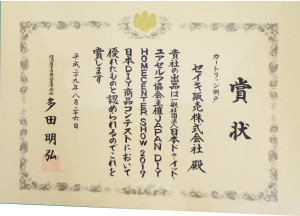 賞状
カートリッジ網戸
セイキ販売株式会社 殿
貴社の出品は一般社団法人日本ドゥ・イット・
ユアセルフ協会主催JAPAN DIY
HOMECENTER SHOW 2017
日本DIY商品コンテストにおいて
優れたものと認められるのでこれを
賞します
平成二十九年八月二十六日
多田明弘